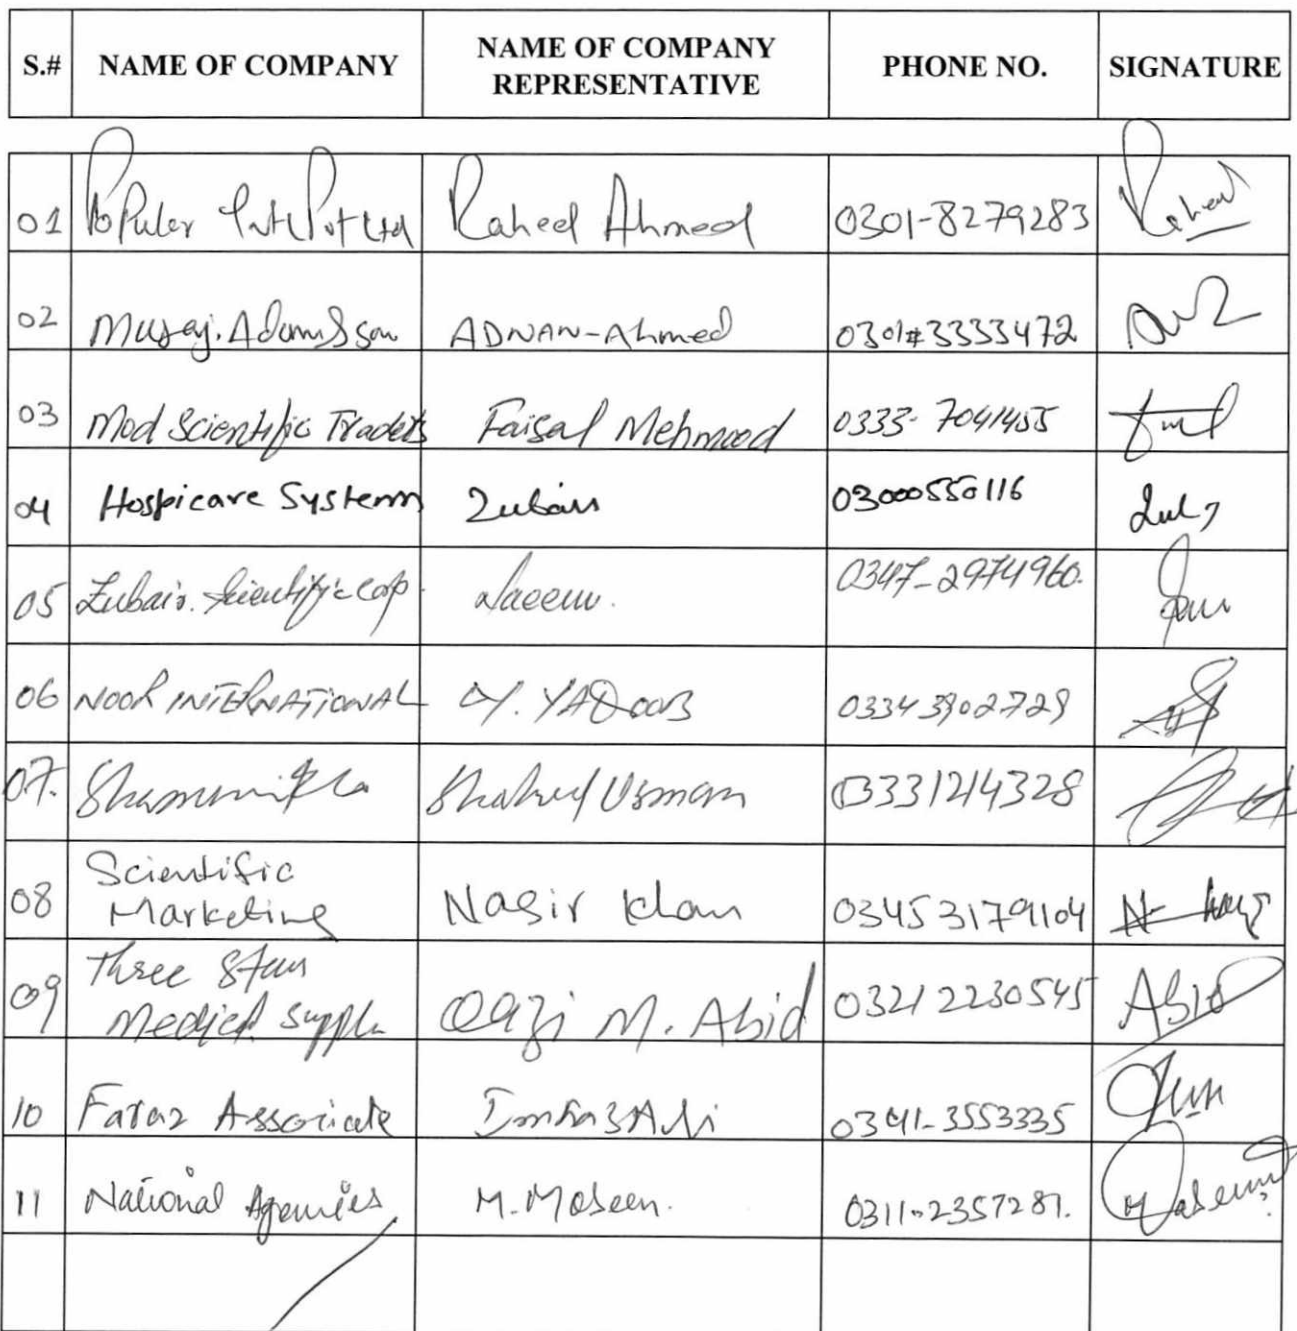 S.# NAME OF COMPANY NAME OF COMPANY REPRESENTATIVE PHONE NO. SIGNATURE
01 Populer Intl Pvt Ltd Raheel Ahmed 0301-8279283 Raheel
02 Musaj. Adam & Son ADNAN-Ahmed 0301#3333472
03 Mod Scientific Traders Faisal Mehmood 0333-7041455
04 Hospicare System Zubair 03000550116
05 Zubair. Scientific Corp. Naeem. 0347-2974960.
06 NOOR INTERNATIONAL M. YAQOOB 03343902729
07. Usman 03331214328
08 Scientific Marketing Nasir Khan 03453179104
09 Three Star Medical Suppl Qazi M. Abid 03212230545 Abid
10 Faraz Associate Imtiaz Ali 0341-3553335
11 National Agencies M. Moseen. 0311-2357281.